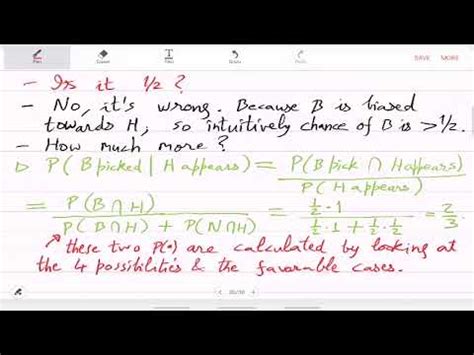 SAVE MORE
- Is it 1/2 ?
- No, it's wrong. Because B is biased
towards H, so intuitively chance of B is > 1/2.
- How much more ?
▷ P( B picked | H appears) = P(B pick ∩ H appears) / P( H appears)
= P (B ∩ H) / P(B ∩ H) + P(N ∩ H) = ½ · 1 / ½ · 1 + ½ · ½ = 2/3
these two P(•) are calculated by looking at
the 4 possibilities & the favorable cases.